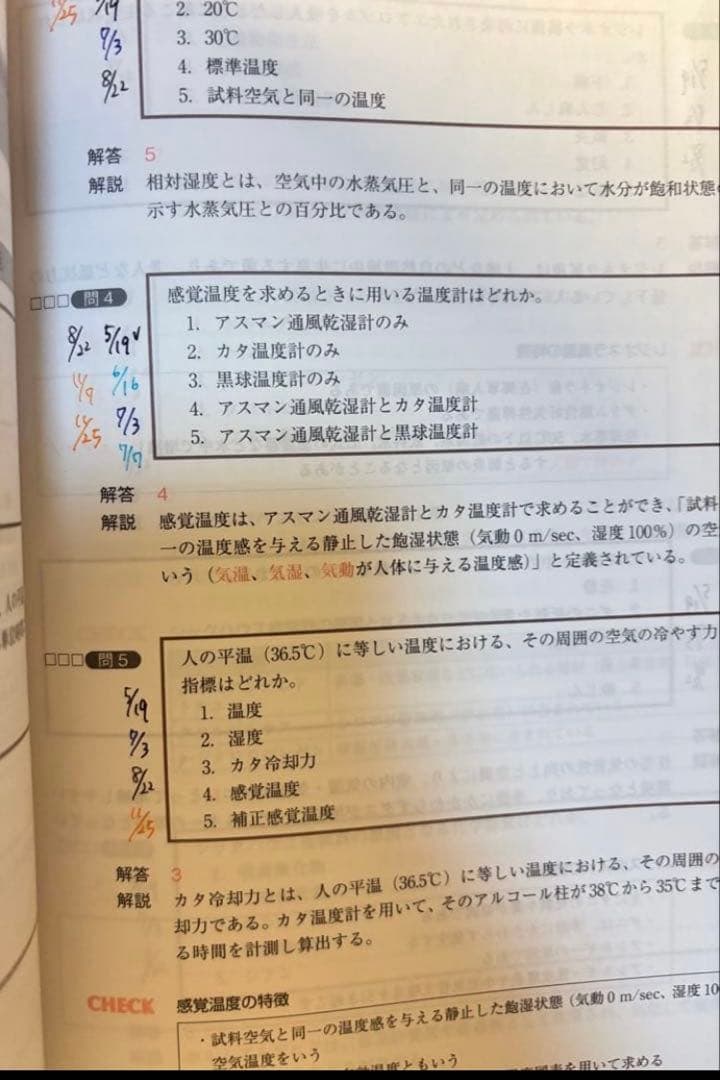 5/19
11/25
7/3
8/22
2. 20℃
3. 30℃
4. 標準温度
5. 試料空気と同一の温度
解答 5
解説 相対湿度とは、空気中の水蒸気圧と、同一の温度において水分が飽和状態
示す水蒸気圧との百分比である。
□□□ 問4 感覚温度を求めるときに用いる温度計はどれか。
1. アスマン通風乾湿計のみ
2. カタ温度計のみ
3. 黒球温度計のみ
4. アスマン通風乾湿計とカタ温度計
5. アスマン通風乾湿計と黒球温度計
8/22 5/19
11/9 6/16
11/25 7/3
7/7
解答 4
解説 感覚温度は、アスマン通風乾湿計とカタ温度計で求めることができ、「試料
一の温度感を与える静止した飽湿状態（気動0 m/sec、湿度100%）の空
いう（気温、気湿、気動が人体に与える温度感）」と定義されている。
□□□ 問5 人の平温（36.5℃）に等しい温度における、その周囲の空気の冷やす力
指標はどれか。
1. 温度
2. 湿度
3. カタ冷却力
4. 感覚温度
5. 補正感覚温度
5/19
7/3
8/22
11/25
解答 3
解説 カタ冷却力とは、人の平温（36.5℃）に等しい温度における、その周囲の
却力である。カタ温度計を用いて、そのアルコール柱が38℃から35℃まで
る時間を計測し算出する。
CHECK 感覚温度の特徴
・試料空気と同一の温度感を与える静止した飽湿状態（気動0 m/sec、湿度10
空気温度をいう
温度ともいう
図表を用いて求める